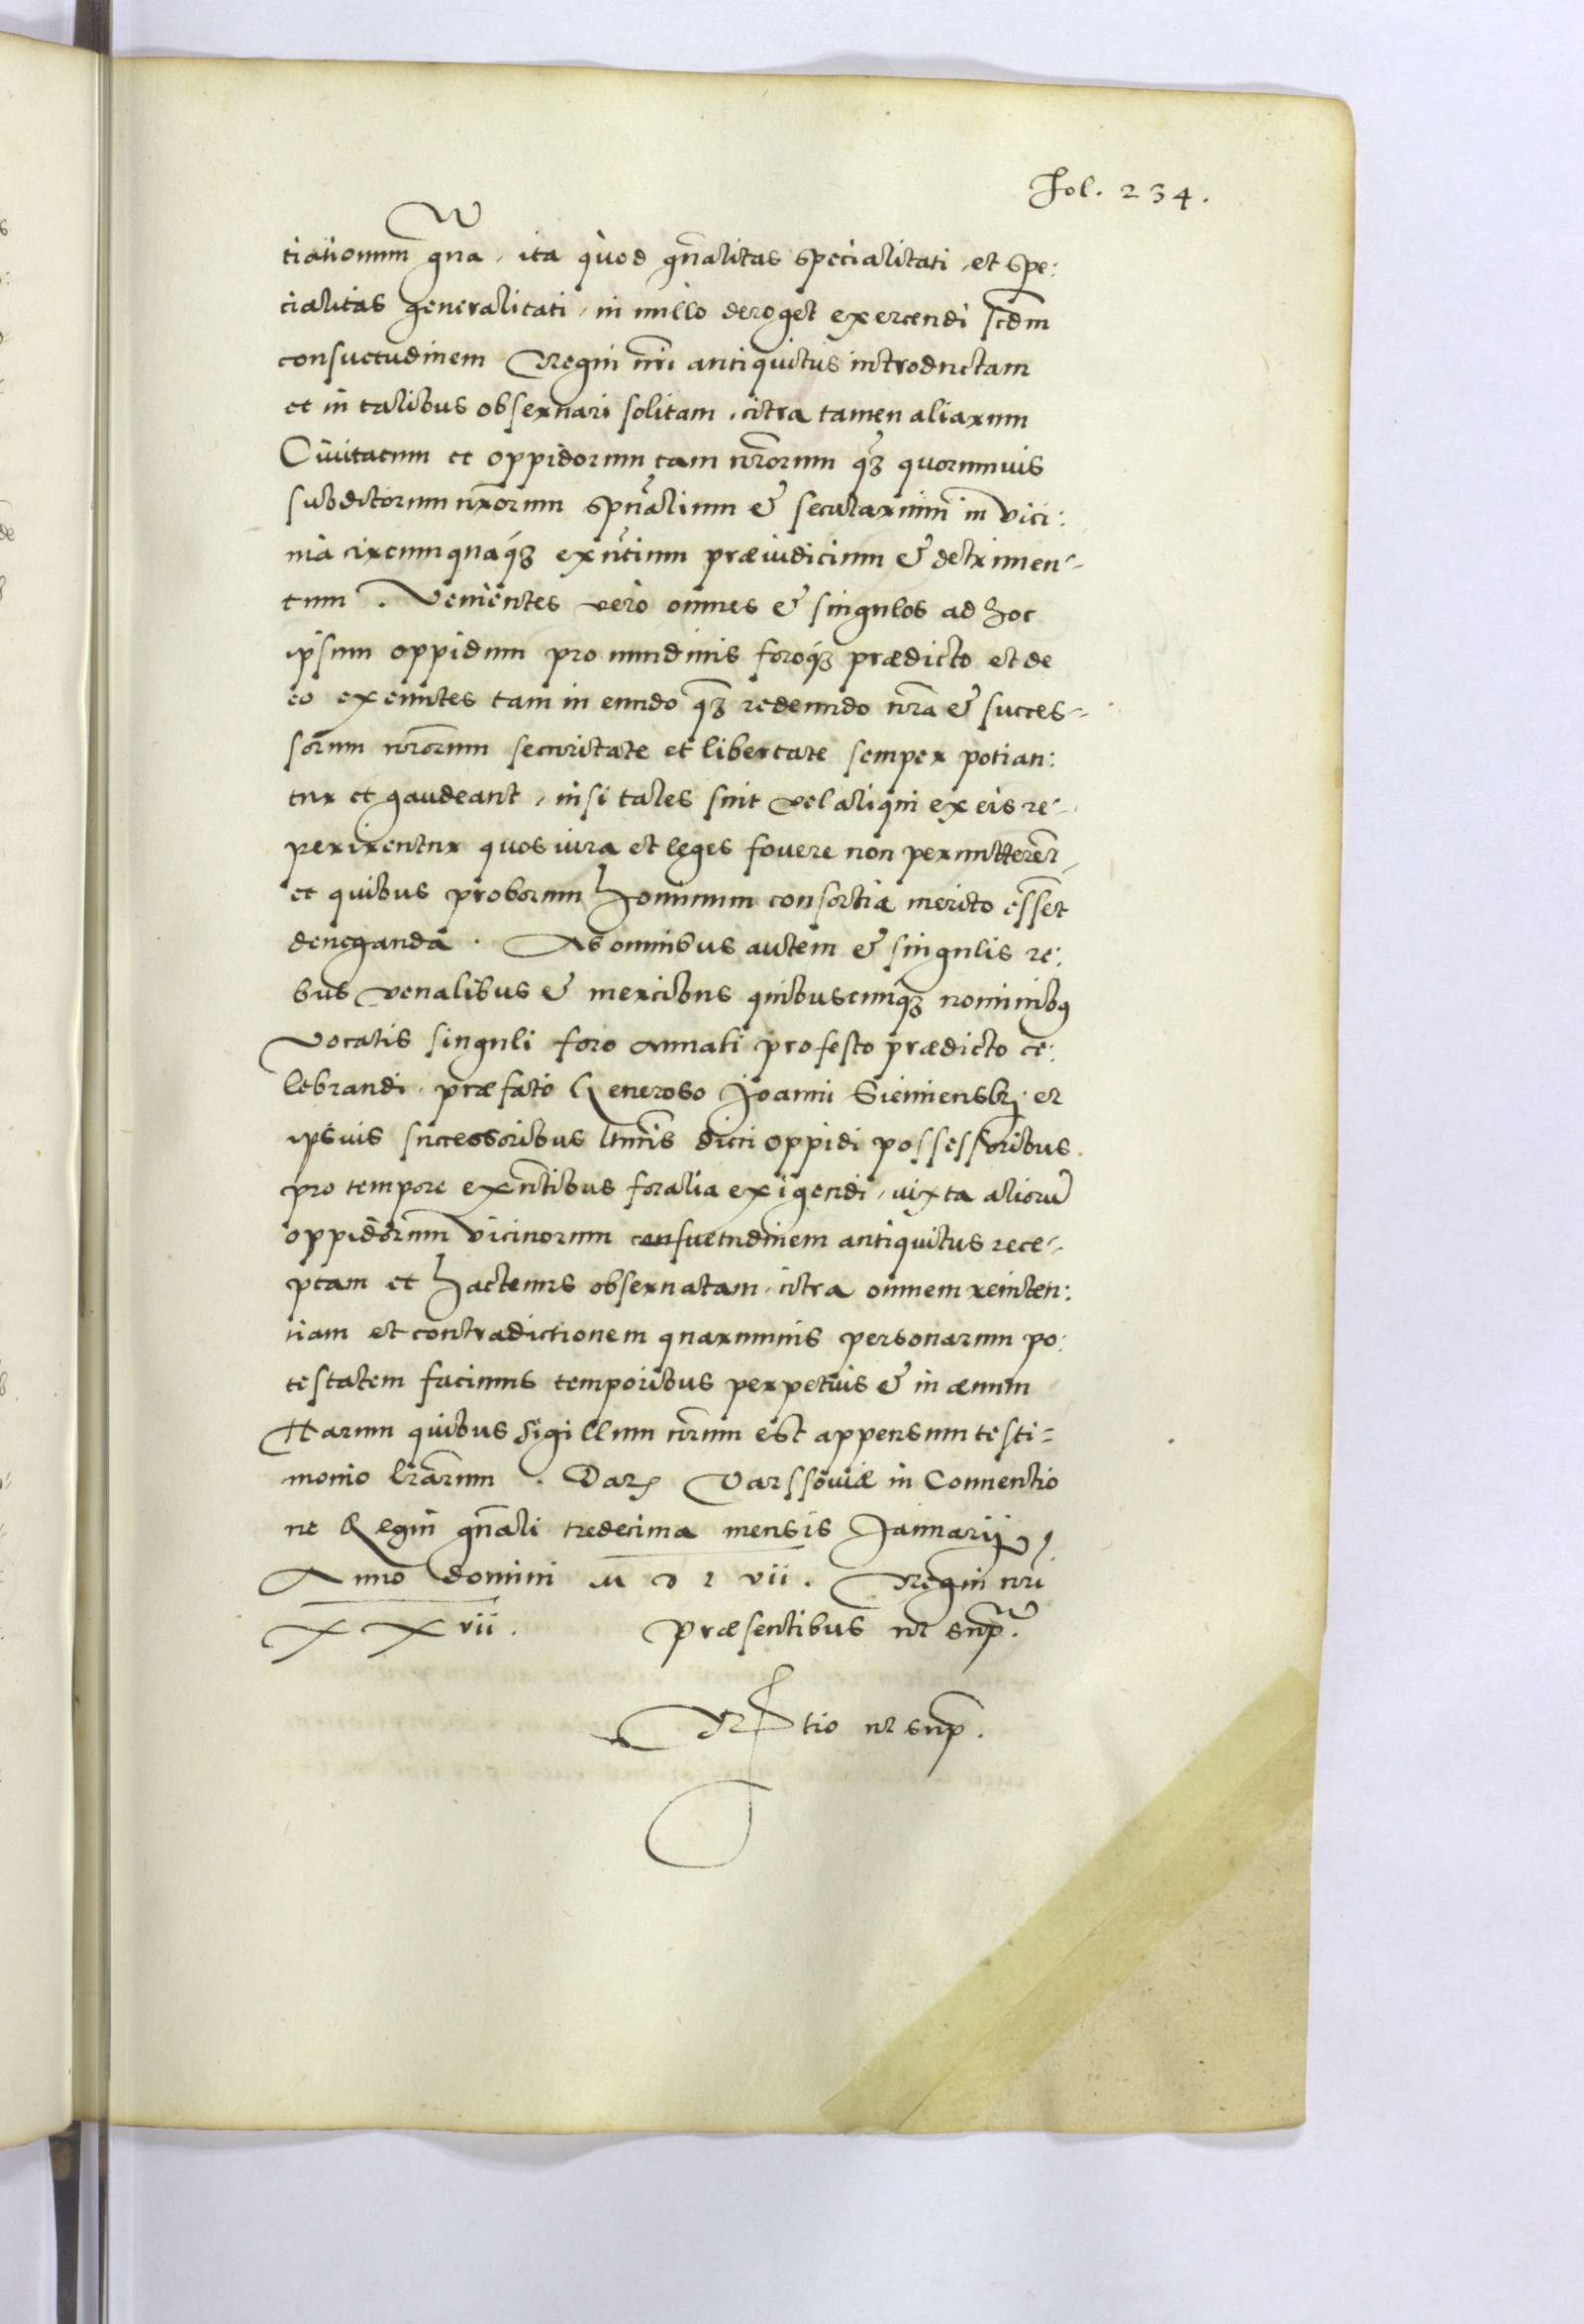 Fol. 234.
tiationum gn̄a, ita quod gn̄alitas specialitati, et spe:
cialitas generalitati, in nullo deroget exercendi scdm
consuetudinem Regni nr̄i antiquitus introductam
et in talibus obseruari solitam, citra tamen aliarum
Ciuitatum et oppidorum tam nr̄orum q̄ȝ quorumuis
subditorum nr̄orum spūalium & secularium in vici:
nia circumquaqȝ exn̄tium præiudicium & detrimen-
tum. Venientes vero omnes & singulos ad hoc
ipsum oppidum pro nundinis foroqȝ prædicto et de
eo exeuntes tam in eundo q̄ȝ redeundo nr̄a & succes-
sorum nr̄orum securitate et libertate semper potian:
tur et gaudeant, nisi tales sint vel aliqui ex eis re-
perirentur quos iura et leges fouere non permitterēt
et quibus proborum hominum consortia merito essēt
deneganda. Ab omnibus autem & singulis re:
bus venalibus & mercibus quibuscunqȝ nominibꝰ
vocatis singuli foro annali pro festo prædicto ce:
lebrandi, præfato Generoso Joanni Siemiensky et
ipsuis successoribus ltmis dicti oppidi possessoribus
pro tempore exn̄tibus foralia exigendi, iuxta aliorū
oppidorum vicinorum consuetudinem antiquitus rece-
ptam et hactenus obseruatam, citra omnem reniten:
tiam et contradictionem quarumuis personarum po:
testatem facimus temporibus perpetuis & in æuum
Harum quibus sigillum nr̄um est appensum testi=
monio lr̄arum. Datꝭ Varssouiæ in Conuentio
ne Regni gn̄ali tredecima mensis Januarij
Anno domini M D L vii. Regni nr̄i
XXvii. Præsentibus vt sup̄.
R̄tio vt sup̄.